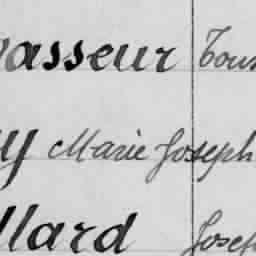 asseur Tous
y Marie Joseph
llard Josep